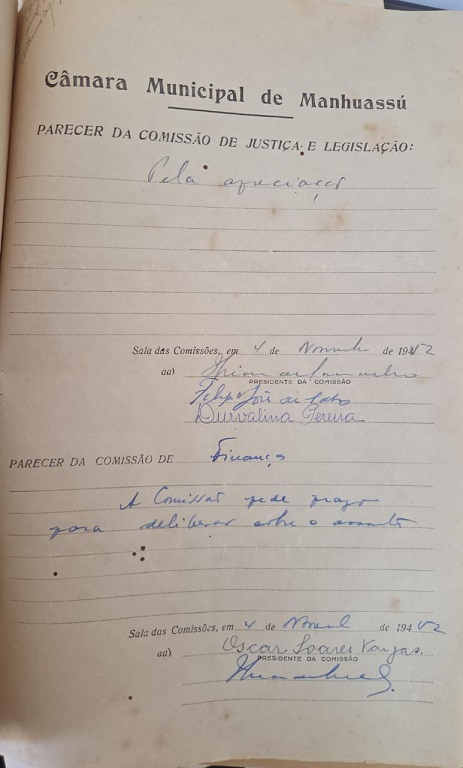 Câmara Municipal de Manhuassú
PARECER DA COMISSÃO DE JUSTIÇA E LEGISLAÇÃO:
Pela apreciação
Sala das Comissões, em 4 de Novembro de 194
aa)
PRESIDENTE DA COMISSÃO
Felipe José de
Durvalina Pereira
PARECER DA COMISSÃO DE Finanças
A Comissão pede prazo
para deliberar sobre o assunto
Sala das Comissões, em 4 de de 194
aa) Oscar Soares Vargas.
PRESIDENTE DA COMISSÃO